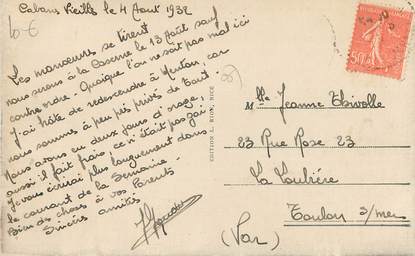 Cabans Vieilles le 4 Aout 1932
Les manœuvres se tirent
nous serons à la Caserne le 13 Août sauf
contre ordre. Quoique l'on ne soit pas mal ici
J'ai hâte de redescendre à Menton, car
nous sommes à peu près privés de tout.
Nous avons eu deux jours d'orage,
aussi il fait frais, ce n'était pas gai.
Je vous écrirai plus longuement dans
le courant de la Semaine.
Bien des choses à vos Parents
Sincères amitiés
EDITION L. RION, NICE
50c
Mlle Jeanne Thivolle
23 Rue Rose 23
La Loubière
Toulon s/mer
(Var)